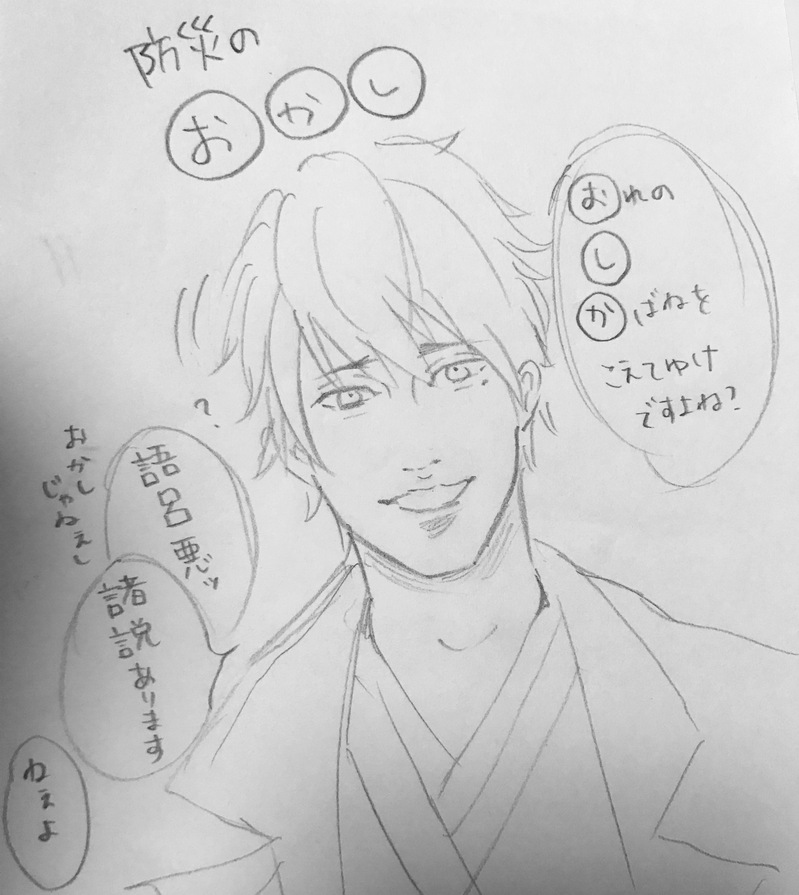 防災の
おかし
おれの
し
かばねを
こえてゆけ
ですよね?
?
語呂悪ッ
おかし
じゃねえし
諸説あります
ねぇよ